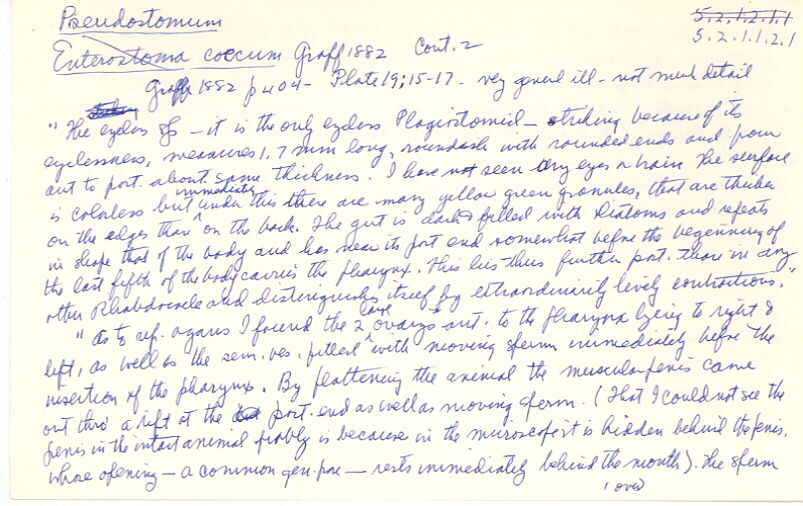 Pseudostomum
5.2.1.2.1.1
5.2.1.1.2.1
Enterostoma coecum Graff 1882 Cont. 2
Graff 1882 p 404 - Plate 19; 15-17 - very general ill - not much detail
"The eyeless sp - it is the only eyeless Plagiostomid - striking because of its
eyelessness, measures 1.7 mm long, roundish with rounded ends and from
ant to post. about same thickness. I have not seen any eyes or brain The surface
is colorless but immediately under this there are many yellow green granules, that are thicker
on the edges than on the back. The gut is filled with Diatoms and repeats
in shape that of the body and has near its post end somewhat before the beginning of
the last fifth of the body carries the pharynx. This lies thus further post. than in any
other Rhabdocoele and distinguishes itself by extraordinarily lively contractions."
"As to rep. organs I found the 2 large ovarys ant. to the pharynx lying to right &
left, as well as the sem. ves. filled with moving sperm immediately before the
insertion of the pharynx. By flattening the animal the muscular penis came
out thro a rift at the post. end as well as moving sperm. (That I could not see the
penis in the intact animal probly is because in the microscope it is hidden behind the penis,
whose opening - a common gen. pore - rests immediately behind the mouth). The sperm
(over)